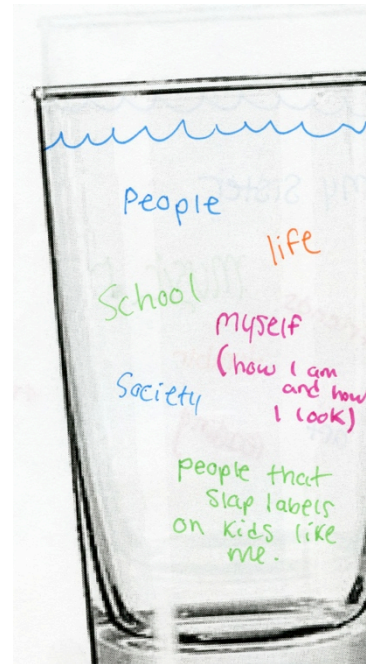 People
life
School
myself
(how I am
and how
I look)
Society
people that
slap labels
on kids like
me.